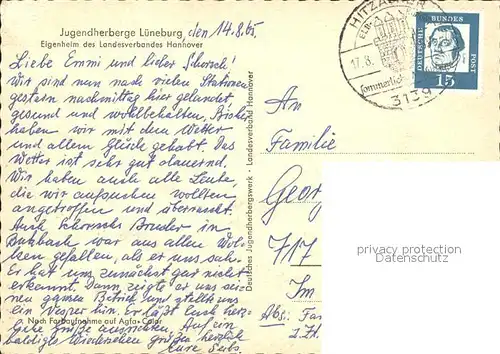 Jugendherberge Lüneburg, den 14.8.65
Eigenheim des Landesverbandes Hannover
Liebe Emmi und lieber Schorsch!
Wir sind nun nach vielen Stationen
gestern nachmittag hier gelandet,
gesund und wohlbehalten. Bisher
haben wir mit dem Wetter
und allem Glück gehabt. Das
Wetter ist sehr gut dauernd.
Wir haben auch alle Leute,
die wir aufsuchen wollten
angetroffen und überrascht.
Auch Schorschs Bruder in
Butzbach war aus allen Wol-
ken gefallen, als er uns sah.
Er hat uns zunächst gar nicht
erkannt. Dann zeigte er uns sei-
nen ganzen Betrieb und stellte uns
ein Vesper hin. Er läßt Euch herz-
liche Grüße ausrichten. Auf ein
baldiges Wiedersehen grüßen herzlich
Eure
Nach Farbaufnahme auf Agfa-Color
Deutsches Jugendherbergswerk · Landesverband Hannover
HITZACKER
17.8.
3139
DEUTSCHE BUNDESPOST
15
An
Familie
Georg
717
Im
Abs: Fam
z.Zt.
privacy protection
Datenschutz